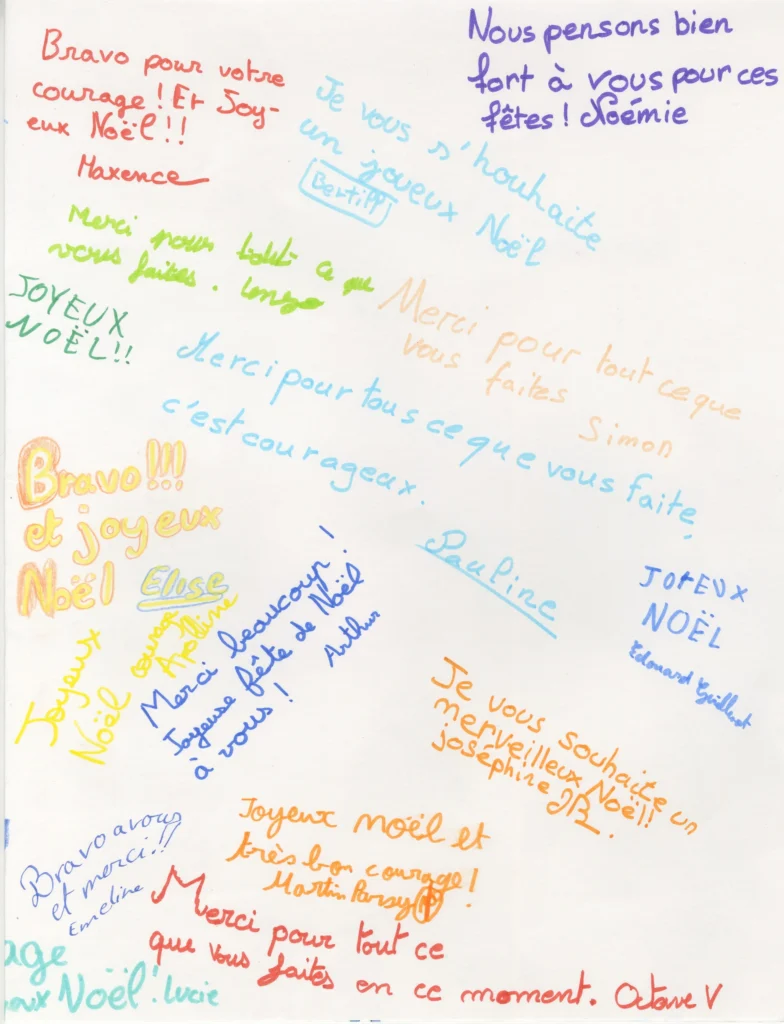 Bravo pour votre
courage ! Et Joy-
eux Noël !!
Maxence
Nous pensons bien
fort à vous pour ces
fêtes ! Noémie
Je vous s'houhaite
un joyeux Noël
Merci pour tout ce que
vous faites.
JOYEUX
NOËL!!
Merci pour tout ce que
vous faites
Simon
Merci pour tous ce que vous faite,
c'est courageux.
Pauline
Bravo!!!
et joyeux
Noël Elise
Joyeux
Noël courage
Apolline
Merci beaucoup !
Joyeuse fête de Noël
à vous !
Arthur
JOYEUX
NOËL
Edouard
Je vous souhaite un
merveilleux Noël!
joséphine JR.
Bravo a vous
et merci!!
Emeline
Joyeux noël et
très bon courage!
Martin Parsy P.
Merci pour tout ce
que vous faites en ce moment. Octave V
age
eux Noël! Lucie